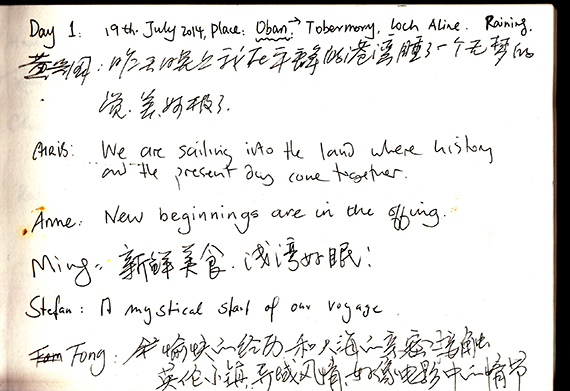 Day 1: 19th. July 2014, Place: Oban → Tobermory, Loch Aline. Raining.
昨天晚上我在平静的港湾睡了一个无梦的
觉. 美好极了.
CHRIS: We are sailing into the land where history
and the present day come together.
Anne: New beginnings are in the offing.
Ming: 新鲜美食. 浅湾好眠!
Stefan: A mystical start of our voyage.
Fong: 愉快的经历和大海的亲密接触
英伦小镇, 异域风情, 如像电影中的情节